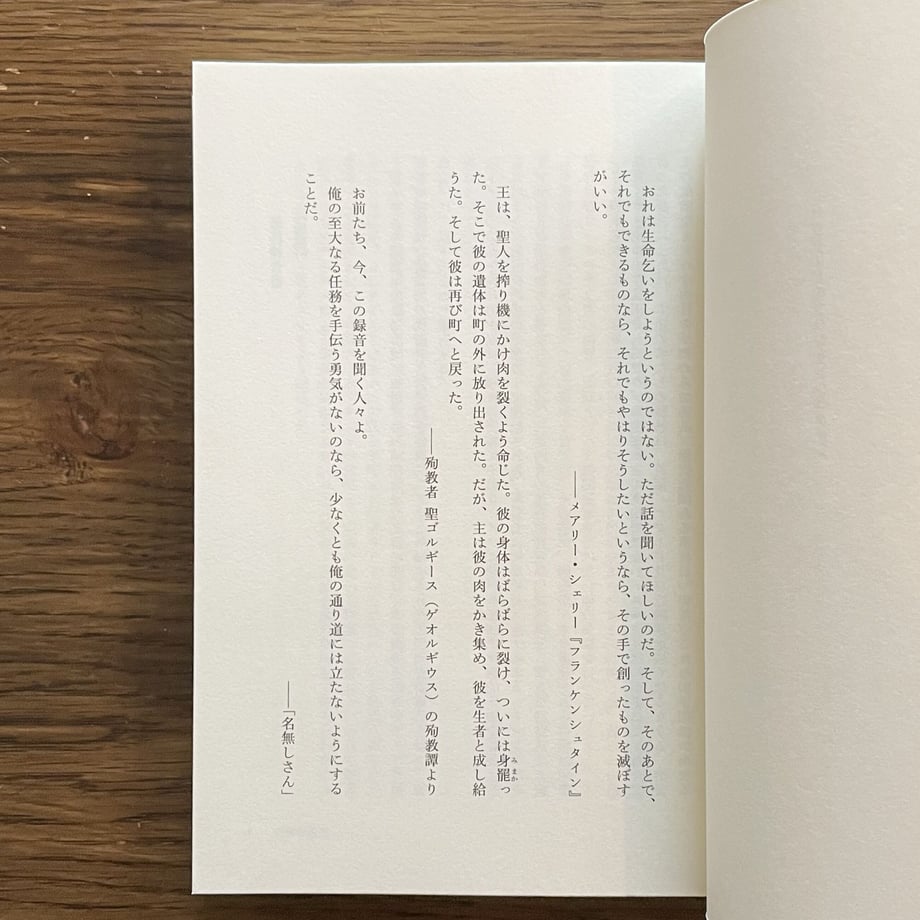 おれは生命乞いをしようというのではない。ただ話を聞いてほしいのだ。そして、そのあとで、
それでもできるものなら、それでもやはりそうしたいというなら、その手で創ったものを滅ぼす
がいい。
――メアリー・シェリー『フランケンシュタイン』
王は、聖人を搾り機にかけ肉を裂くよう命じた。彼の身体はばらばらに裂け、ついには身罷っ
みまか
た。そこで彼の遺体は町の外に放り出された。だが、主は彼の肉をかき集め、彼を生者と成し給
うた。そして彼は再び町へと戻った。
――殉教者 聖ゴルギース（ゲオルギウス）の殉教譚より
お前たち、今、この録音を聞く人々よ。
俺の至大なる任務を手伝う勇気がないのなら、少なくとも俺の通り道には立たないようにする
ことだ。
――「名無しさん」